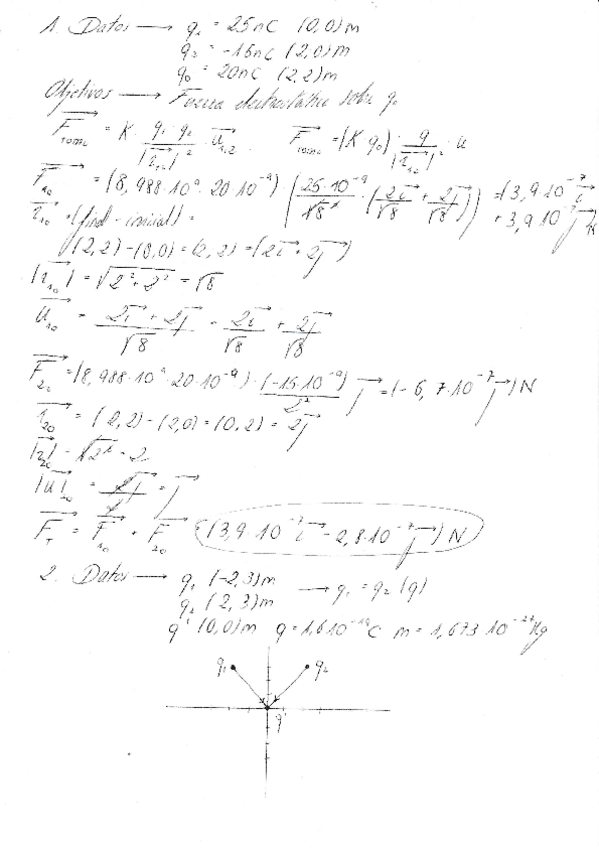 1. Datos → q₁ = 25nC (0,0)m
q₂ = -15nC (2,0)m
q₀ = 20nC (2,2)m
Objetivos → Fuerza electrostática sobre q₀
= K · q₁·q₂ / |r₁₂|² · u₁₂ = (K q₀) · q / |r₁₀|² · u
F₁₀ = (8,988·10⁹·20·10⁻⁹) · (25·10⁻⁹ / √8² · (2i/√8 + 2j/√8)) = (3,9 10⁻⁷ i + 3,9 10⁻⁷ j)
r₁₀ = (final - inicial) =
(2,2) - (0,0) = (2,2) = (2i + 2j)
|r₁₀| = √2² + 2² = √8
u₁₀ = 2i + 2j / √8 = 2i/√8 + 2j/√8
F₂₀ = (8,988·10⁹·20·10⁻⁹) · (-15·10⁻⁹) / 2² j = (-6,7·10⁻⁷ j) N
r₂₀ = (2,2) - (2,0) = (0,2) = 2j
|r₂₀| = √2² = 2
|u|₂₀ = 2j / 2 = j
F_T = F₁₀ + F₂₀ (3,9·10⁻⁷ i - 2,8·10⁻⁷ j) N
2. Datos → q₁ (-2,3)m → q₁ = q₂ (q)
q₂ (2,3)m
q' (0,0)m q = 1,6 10⁻¹⁹ C m = 1,673 10⁻²⁷ Kg
q₁ q₂
q'